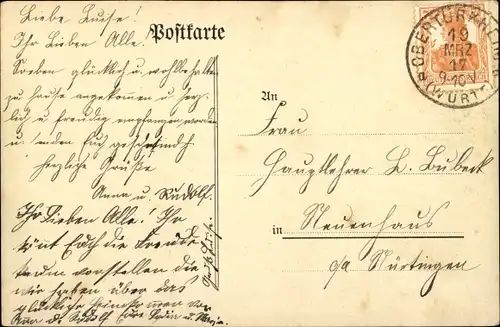 Liebe Luise!
Ihr Lieben Alle.
Soeben glücklich u. wohlbehalten
zu Hause angekommen u. herz-
lich u. freudig empfangen worden
u. senden Euch
herzliche Grüsse
Anna u. Rudolf.
Ihr Lieben Alle! Ihr
könt Euch die Freude
vorstellen die
wir haben über das
glückliche
Rudolf
Postkarte
OBERTÜRKHEIM
19
MRZ
17
9-10V
(WÜRTT)
An
Frau
Hauptlehrer L. Lubeck
in Neuenhaus
o/a Nürtingen